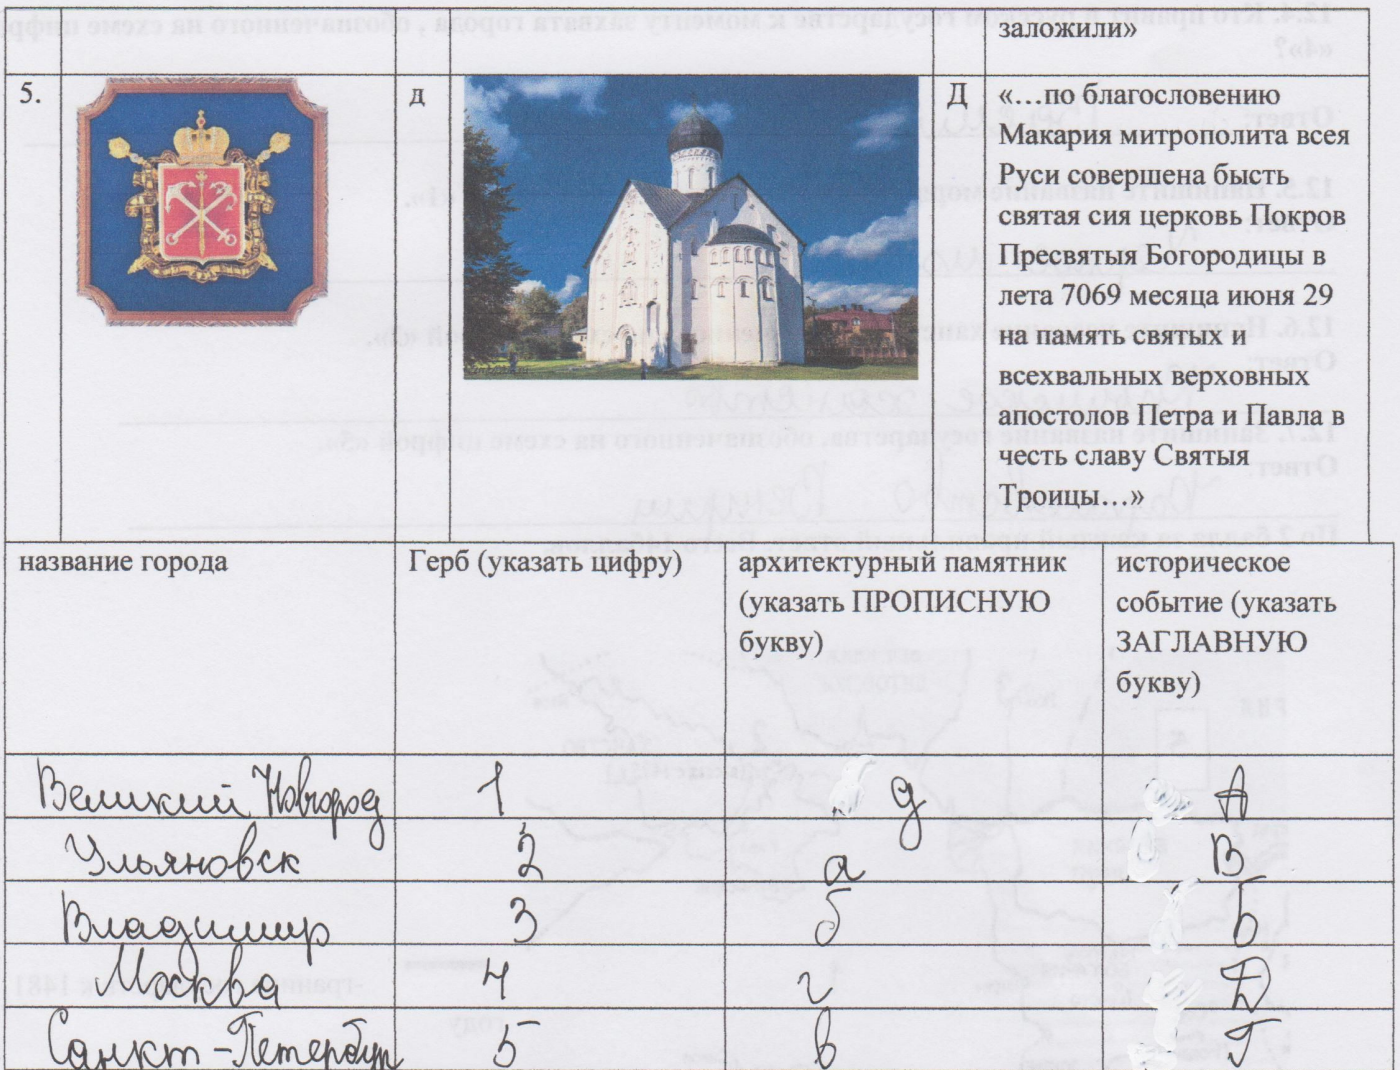 заложили»
5.
д
Д
«…по благословению
Макария митрополита всея
Руси совершена бысть
святая сия церковь Покров
Пресвятыя Богородицы в
лета 7069 месяца июня 29
на память святых и
всехвальных верховных
апостолов Петра и Павла в
честь славу Святыя
Троицы…»
название города
Герб (указать цифру)
архитектурный памятник
(указать ПРОПИСНУЮ
букву)
историческое
событие (указать
ЗАГЛАВНУЮ
букву)
Великий Новгород 1 д А
Ульяновск 2 а В
Владимир 3 б Б
Москва 4 г Д
Санкт-Петербург 5 в Г